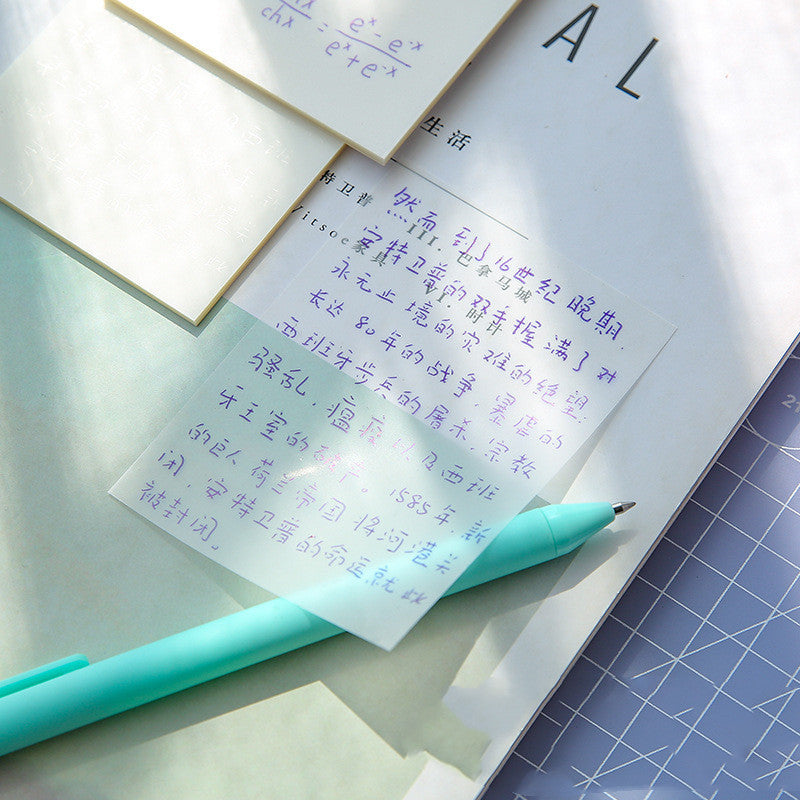 chx = e^x - e^-x / e^x + e^-x
AL
生活
特卫普
Vitsoe家具
III. 巴拿马城
VI. 时计
然而到了16世纪晚期,
安特卫普的双手握满了对
永无止境的灾难的绝望:
长达80年的战争,暴虐的
西班牙步兵的屠杀,宗教
骚乱,瘟疫以及西班
牙王室的破产。1585年,新
的巨人荷兰帝国将河港关
闭,安特卫普的命运就此
被封闭。
21